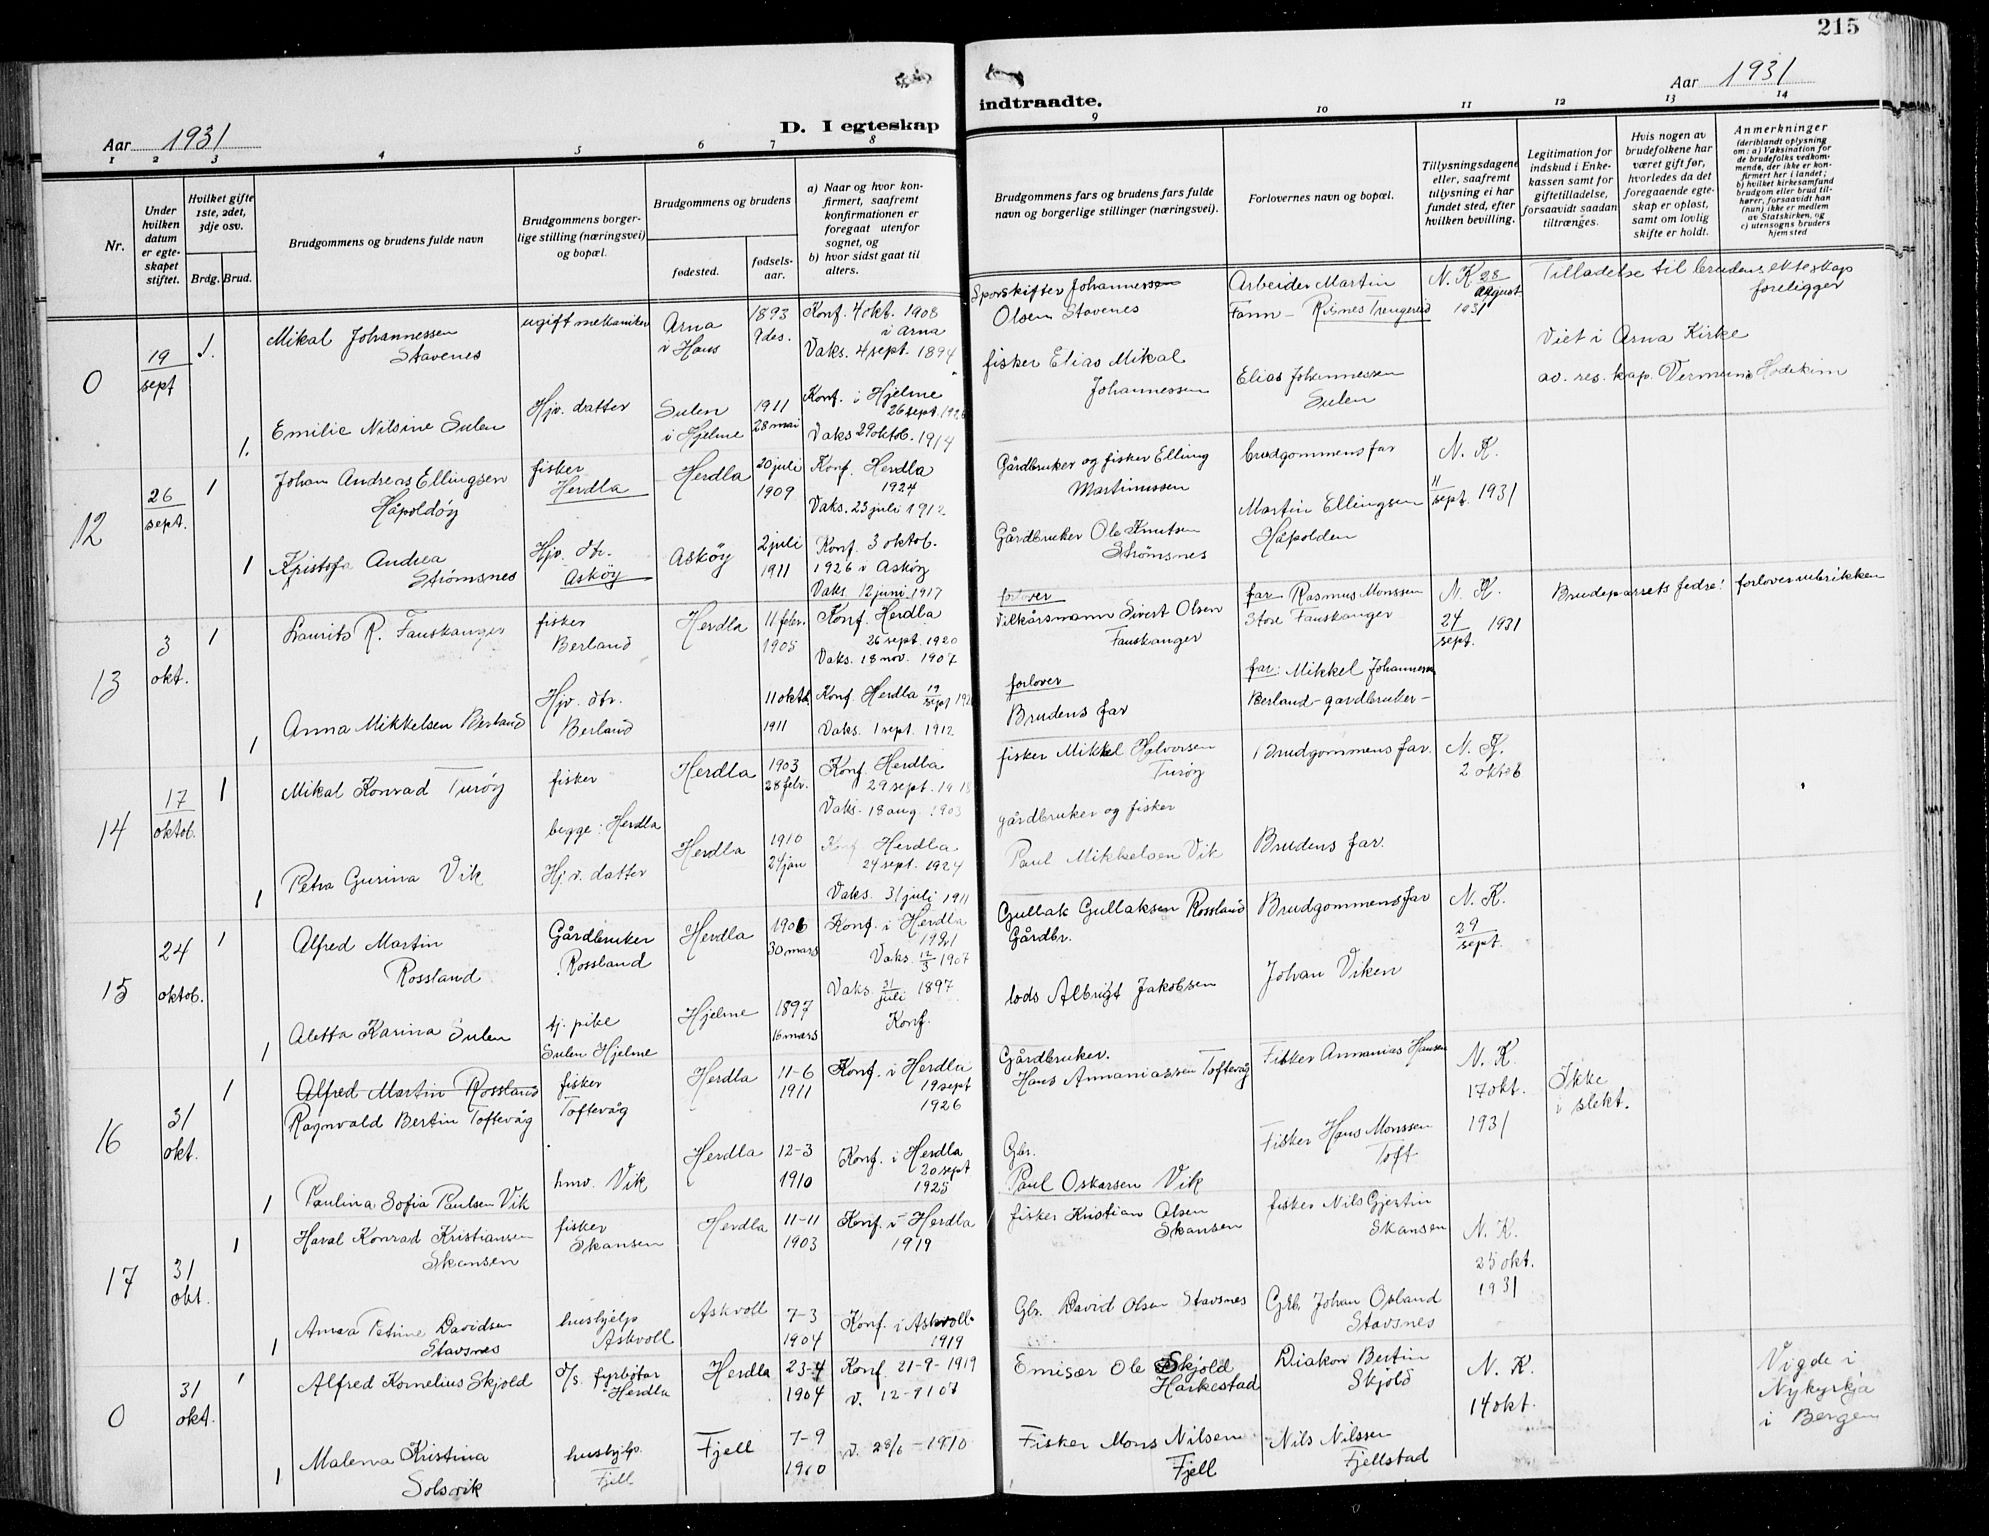 215
Aar 1931
D. I egteskap
indtraadte.
Aar 1931
1 2 3 4 5 6 7 8 9 10 11 12 13 14
Nr.
Under hvilken datum er egteskapet stiftet.
Hvilket gifte 1ste, 2det, 3dje osv.
Brdg. Brud.
Brudgommens og brudens fulde navn
Brudgommens borgerlige stilling (næringsvei) og bopæl.
Brudgommens og brudens
fødested.
fødselsaar.
a) Naar og hvor konfirmert, saafremt konfirmationen er foregaat utenfor sognet, og
b) hvor sidst gaat til alters.
Brudgommens fars og brudens fars fulde navn og borgerlige stillinger (næringsvei).
Forlovernes navn og bopæl.
Tillysningsdagene eller, saafremt tillysning ei har fundet sted, efter hvilken bevilling.
Legitimation for indskud i Enkekassen samt for giftetilladelse, forsaavidt saadan tiltrænges.
Hvis nogen av brudefolkene har været gift før, hvorledes da det foregaaende egteskap er opløst, samt om lovlig skifte er holdt.
Anmerkninger
(deriblandt oplysning om: a) Vaksination for de brudefolks vedkommende, der ikke er konfirmert her i landet; b) hvilket kirkesamfund brudgom eller brud tilhører, forsaavidt han (hun) ikke er medlem av Statskirken, og c) utensogns bruders hjemsted
0
19 sept
1.
Mikal Johannessen Stavenes
ugift mekaniker
Arna i Haus
1893 9 des.
Konf. 4 okt. 1908 i Arna
Vaks. 4 sept. 1894
Sporskifter Johannes Olsen Stavenes
Arbeider Martin Fann – Risnes Trengereid
N. K. 28 august 1931
Tilladelse til brudens ekteskap foreligger
Viet i Arna Kirke av. res. kap.
1.
Emilie Nilsine Sulen
Hjv. datter
Sulen i Hjelme
1911 28 mai
Konf. i Hjelme 26 sept. 1926
Vaks 29 oktob. 1914
fisker Elias Mikal Johannessen
Elias Johannessen Sulen
12
26 sept.
1
Johan Andreas Ellingsen Håpoldøy
fisker Herdla
Herdla
20 juli 1909
Konf. Herdla 1924
Vaks. 23 juli 1912
Gårdbruker og fisker Elling Martinussen
brudgommens far
N. K. 11 sept. 1931
1
Kristofa Andrea Strømsnes
Hjv. dtr. Askøy
Askøy
2 juli 1911
Konf. 3 oktob. 1926 i Askøy
Vaks. 12 juni 1917
Gårdbruker Ole Knutsen Strømsnes
Martin Ellingsen Håpolden
13
3 okt.
1
Laurits R. Fauskanger
fisker Berland
Herdla
11 febr. 1905
Konf. Herdla 26 sept. 1920
Vaks. 18 nov. 1907
forlover
Vilkårsmann Sivert Olsen Fauskanger
far Rasmus Monssen Store Fauskanger
N. K. 24 sept. 1931
Brudeparrets fedre i forloverrubrikken
1
Anna Mikkelsen Berland
Hjv. dtr. Berland
11 oktb 1911
Konf Herdla 19 sept
Vaks. 1 sept. 1912
forlover
Brudens far
far: Mikkel Johannessen Berland – gardbruker –
14
17 oktob.
1
Mikal Konrad Turøy
fisker
begge: Herdla
Herdla
1903 28 febr.
Konf. Herdla 29 sept. 1918
Vaks. 18 aug. 1903
fisker Mikkel Halvorsen Turøy
Brudgommens far.
N. K. 2 oktob
1
Petra Gurina Vik
Hj. v. datter
Herdla
1910 24 jan
Konf Herdla 24 sept. 1924
Vaks. 31 juli 1911
gårdbruker og fisker
Paul Mikkelsen Vik
Brudens far.
15
24 oktob.
1
Alfred Martin Rossland
Gårdbruker Rossland
Herdla
1906 30 mars
Konf. i Herdla 1921
Vaks. 12/3 1907
Gullak Gullaksen Rossland Gårdbr.
Brudgommens far
N. K. 29 sept.
1
Aletta Karina Sulen
tj. pike Sulen Hjelme
Hjelme
1897 16 mars
Vaks. 31 juli 1897
Konf.
lods Albrigt Jakobsen
Johan Viken
16
31 okt.
1
Alfred Martin Rossland
Ragnvald Bertin Toftevåg
fisker Toftevåg
Herdla
11-6 1911
Konf. i Herdla 19 sept 1926
Gårdbruker. Hans Annaniassen Toftevåg
Fisker Annanias Hansen
N. K. 17 okt. 1931
Ikke i slekt.
1
Paulina Sofia Paulsen Vik
hmv. Vik
Herdla
12-3 1910
Konf. i Herdla 20 sept 1925
Gbr. Paul Oskarsen Vik
Fisker Hans Monssen Toft
17
31 okt.
1
Haval Konrad Kristiansen Skansen
fisker Skansen
Herdla
11-11 1903
Konf. i Herdla 1919
fisker Kristian Olsen Skansen
fisker Nils Gjertin Skansen
N. K. 25 okt. 1931
1
Anna Petrine Davidsen Stavsnes
hushjelp Askvoll
Askvoll
7-3 1904
Konf. i Askvoll 1919
Gbr. David Olsen Stavsnes
Gbr. Johan Osland Stavsnes
0
31 okt.
1
Alfred Kornelius Skjold
d/s. fyrbøtar Herdla
Herdla
23-4 1904
Konf. 21-9-1919
v. 12-9 07
Emisær Ole Skjold Harkestad
Diakon Bertin Skjold
N. K. 14 okt.
Vigde i Nykyrkja i Bergen
1
Malena Kristina Solsvik
hushjelp. Fjell
Fjell
7-9 1910
v. 28/6 – 1910
Fisker Mons Nilsen Fjell
Nils Nilssen Fjellstad